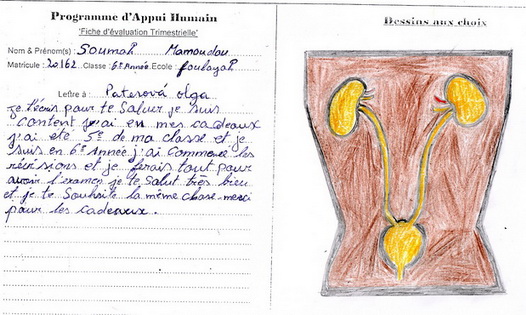 Programme d'Appui Humain
'Fiche d'évaluation Trimestrielle'
Nom & Prénom(s) : Soumah Mamoudou
Matricule : 20162 Classe : 6e Année Ecole : foulayah
Lettre à : Paterová olga
je t'écris pour te Saluer je suis
content j'ai en mes cadeaux
j'ai été 5e de ma classe et je
suis en 6e Année j'ai commencé les
révisions et je ferais tout pour
avoir l'examen je te Salut très bien
et je te Souhaite la même chose merci
pour les cadeaux.
Dessins aux choix